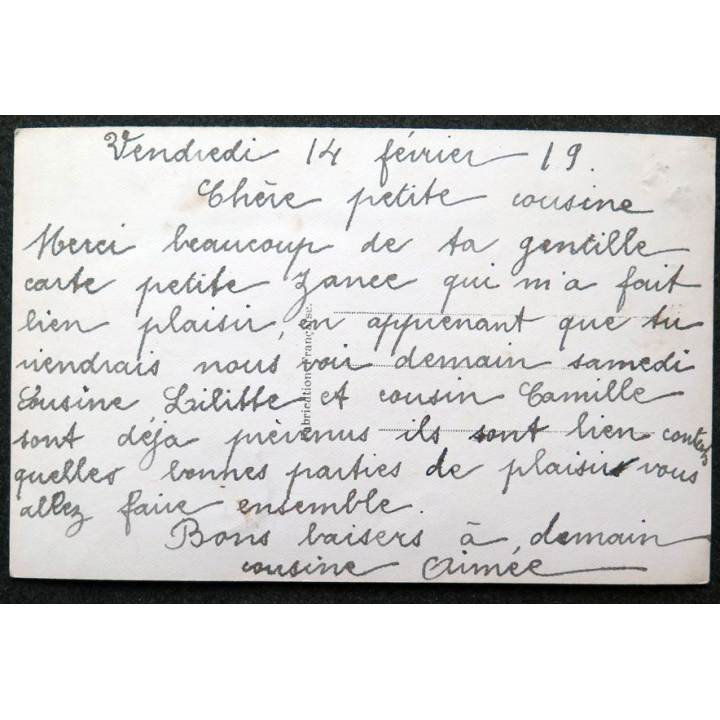 Vendredi 14 février 19.
Chère petite cousine
Merci beaucoup de ta gentille
carte petite Zanee qui m'a fait
bien plaisir, en apprenant que tu
viendrais nous voir demain samedi
Cousine Lilitte et cousin Camille
sont déja prévenus ils sont bien contents
quelles bonnes parties de plaisirs vous
allez faire ensemble.
Bons baisers à demain
cousine Aimée
Fabrication Française.